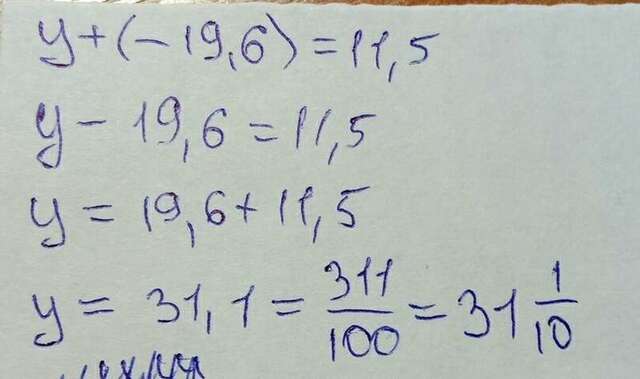 y+(-19,6)=11,5
y-19,6=11,5
y=19,6+11,5
y=31,1=311/100=31 1/10